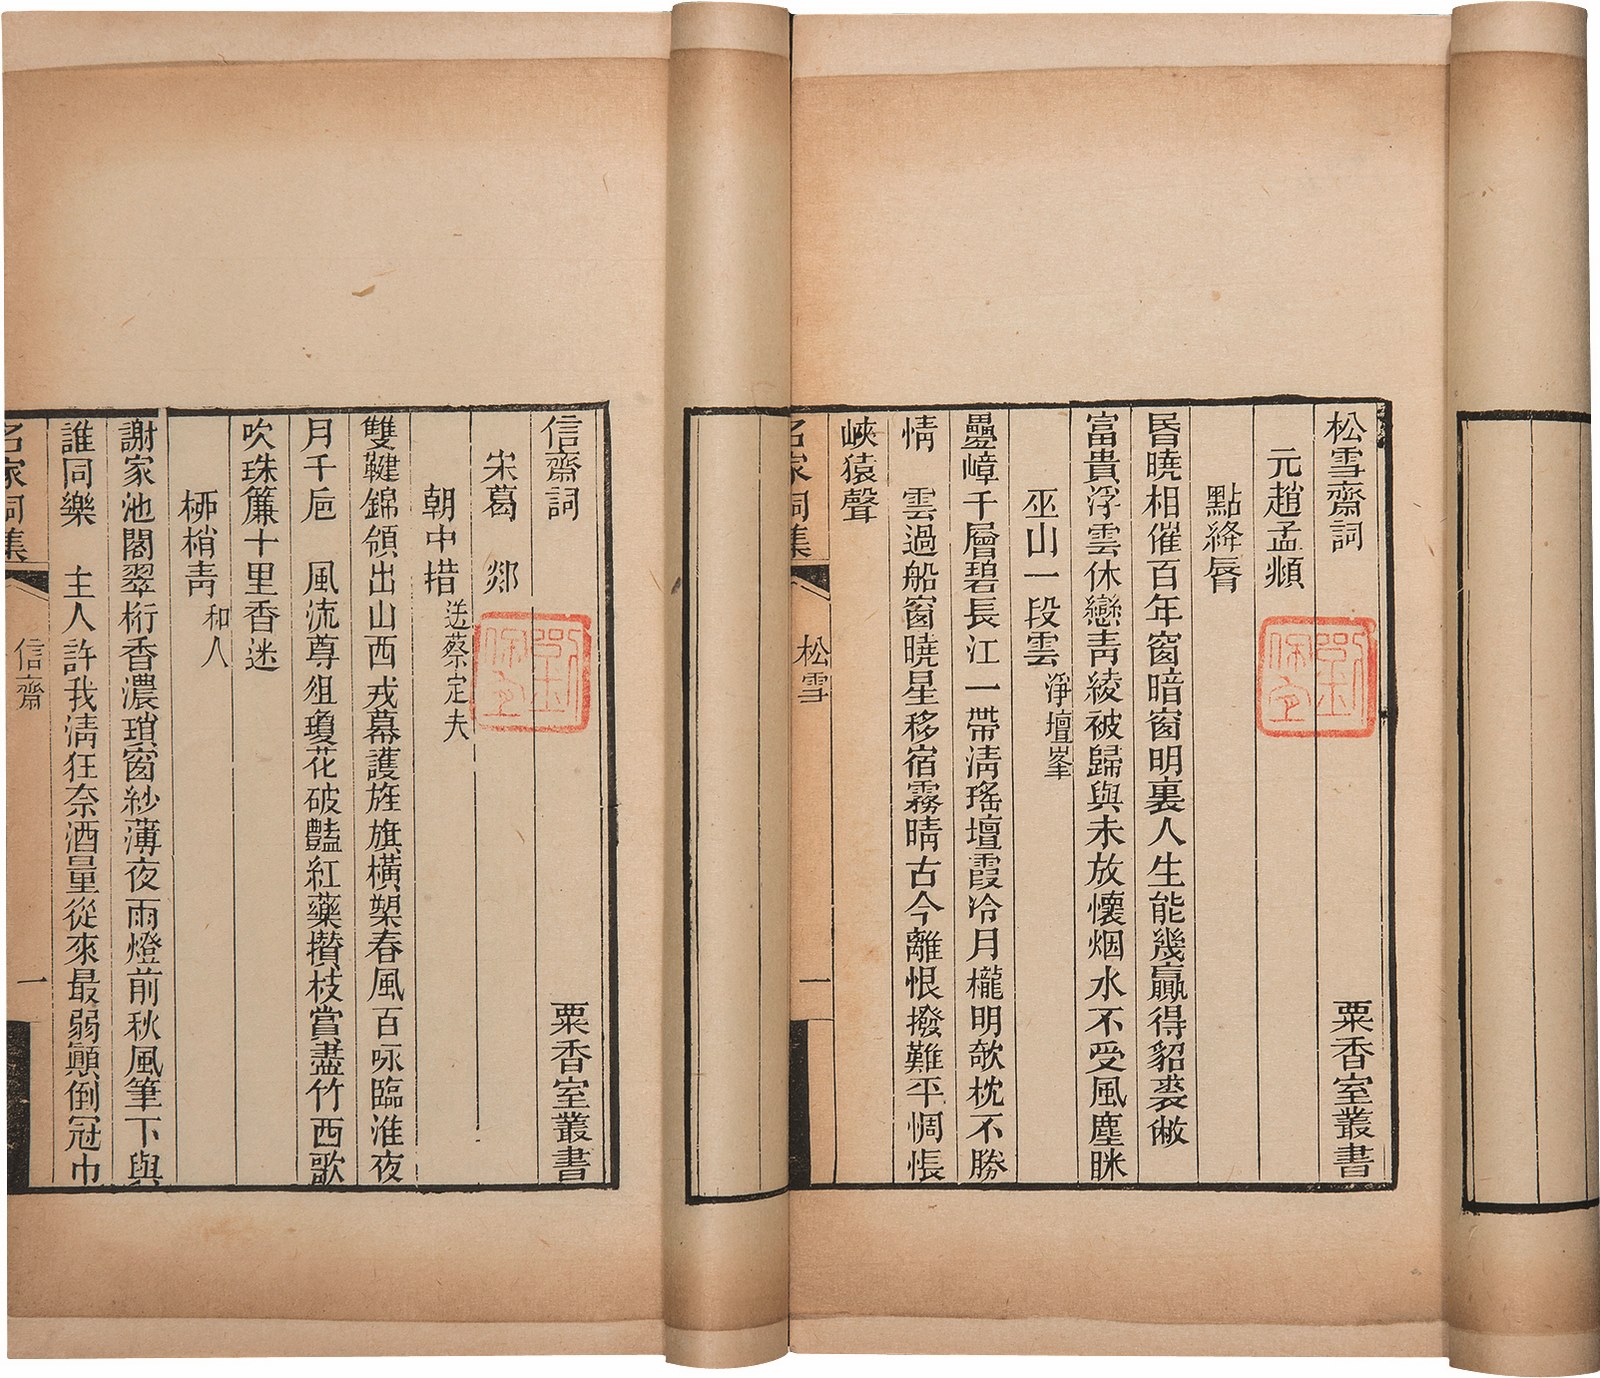 松雪齋詞 粟香室叢書
元趙孟頫
點絳脣
昬曉相催百年窗暗窗明裏人生能幾贏得貂裘敝
富貴浮雲休戀青綾被歸與未放懷烟水不受風塵眯
巫山一段雲 淨壇峯
疊嶂千層碧長江一帶清瑤壇霞冷月櫳明欹枕不勝
情 雲過船窗曉星移宿霧晴古今離恨撥難平惆悵
峽猿聲
名家詞集 松雪 一
信齋詞 粟香室叢書
宋葛 郯
朝中措 送蔡定夫
雙鞬錦領出山西戎幕護旌旗橫槊春風百詠臨淮夜
月千巵 風流尊俎瓊花破豔紅藥攢枝賞盡竹西歌
吹珠簾十里香迷
桺梢青 和人
謝家池閣翠桁香濃瑣窗紗薄夜雨燈前秋風筆下與
誰同樂 主人許我清狂奈酒量從來最弱顚倒冠巾
名家詞集 信齋 一